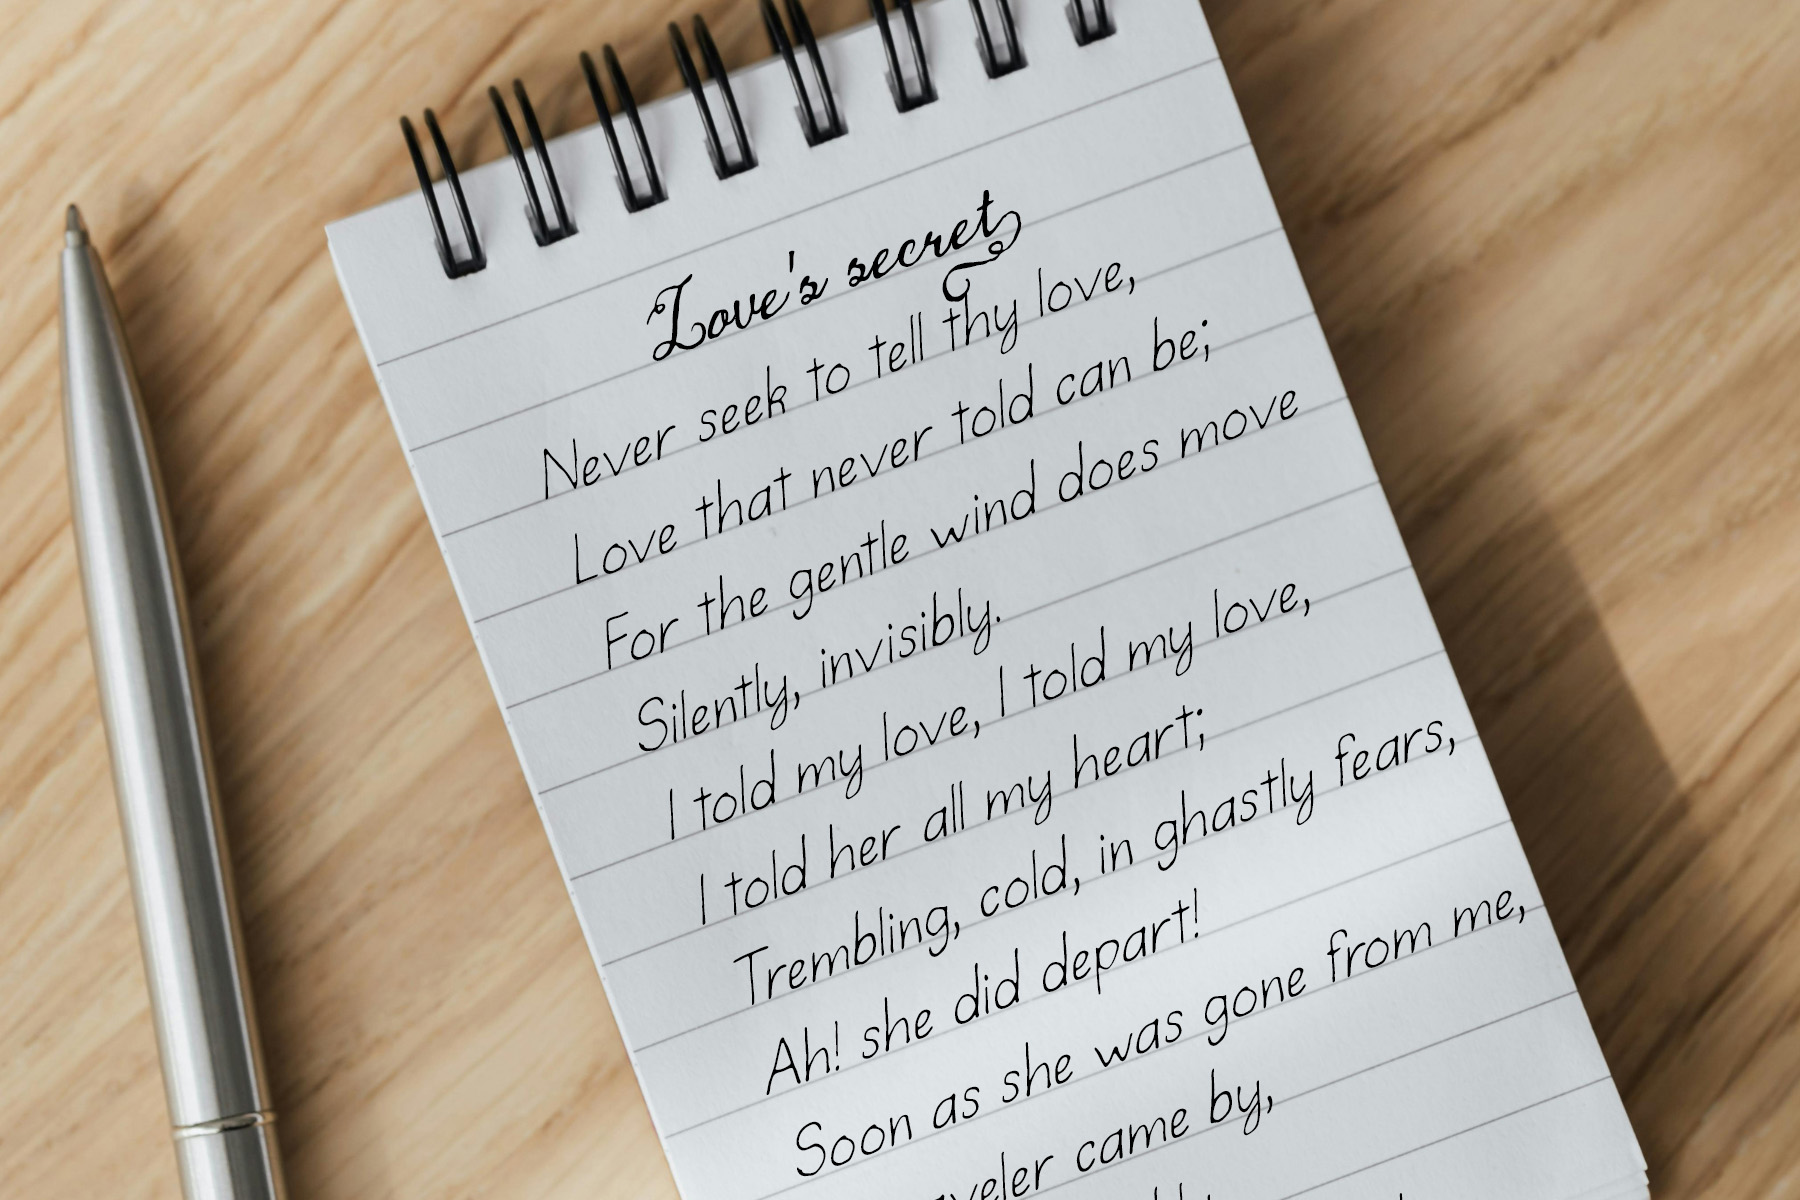 Love's secret
Never seek to tell thy love,
Love that never told can be;
For the gentle wind does move
Silently, invisibly.
I told my love, I told my love,
I told her all my heart;
Trembling, cold, in ghastly fears,
Ah! she did depart!
Soon as she was gone from me,
came by,